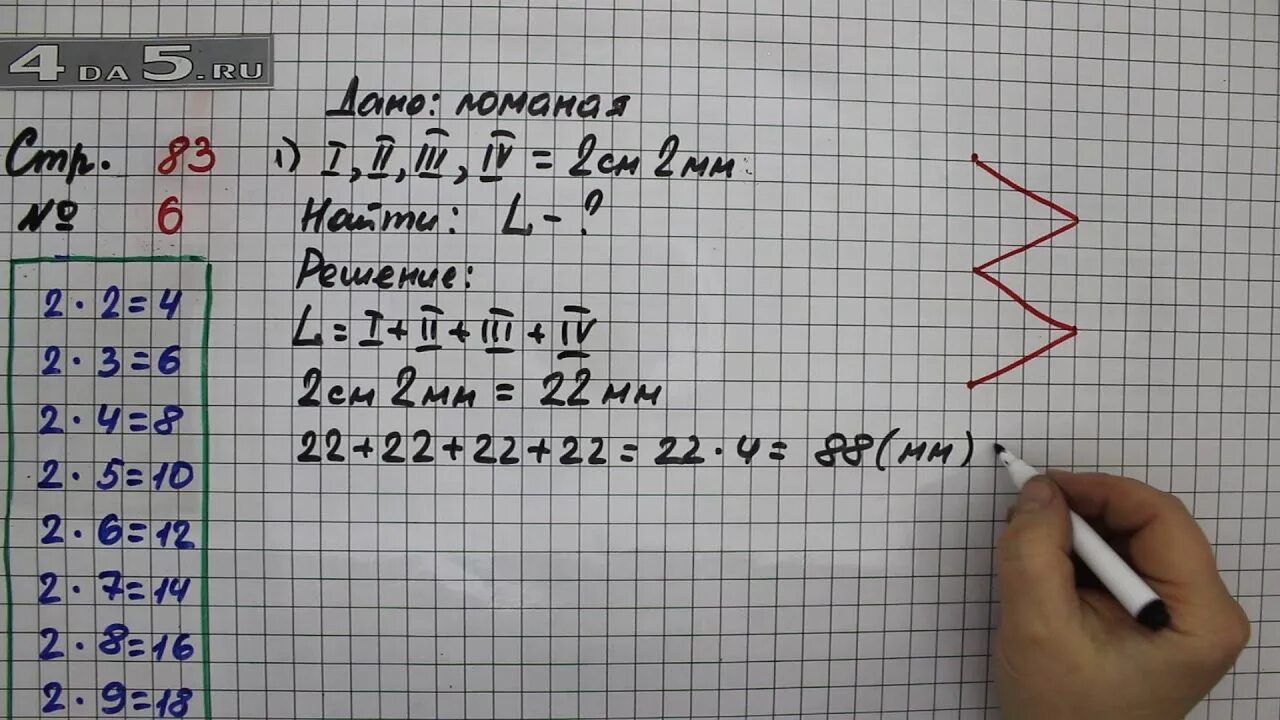 4DA5.RU
Стр. 83
№ 6
2·2=4
2·3=6
2·4=8
2·5=10
2·6=12
2·7=14
2·8=16
2·9=18
Дано: ломаная
1) I, II, III, IV = 2см 2мм.
Найти: L - ?
Решение:
L = I + II + III + IV
2см 2мм = 22 мм
22+22+22+22=22·4= 88(мм)